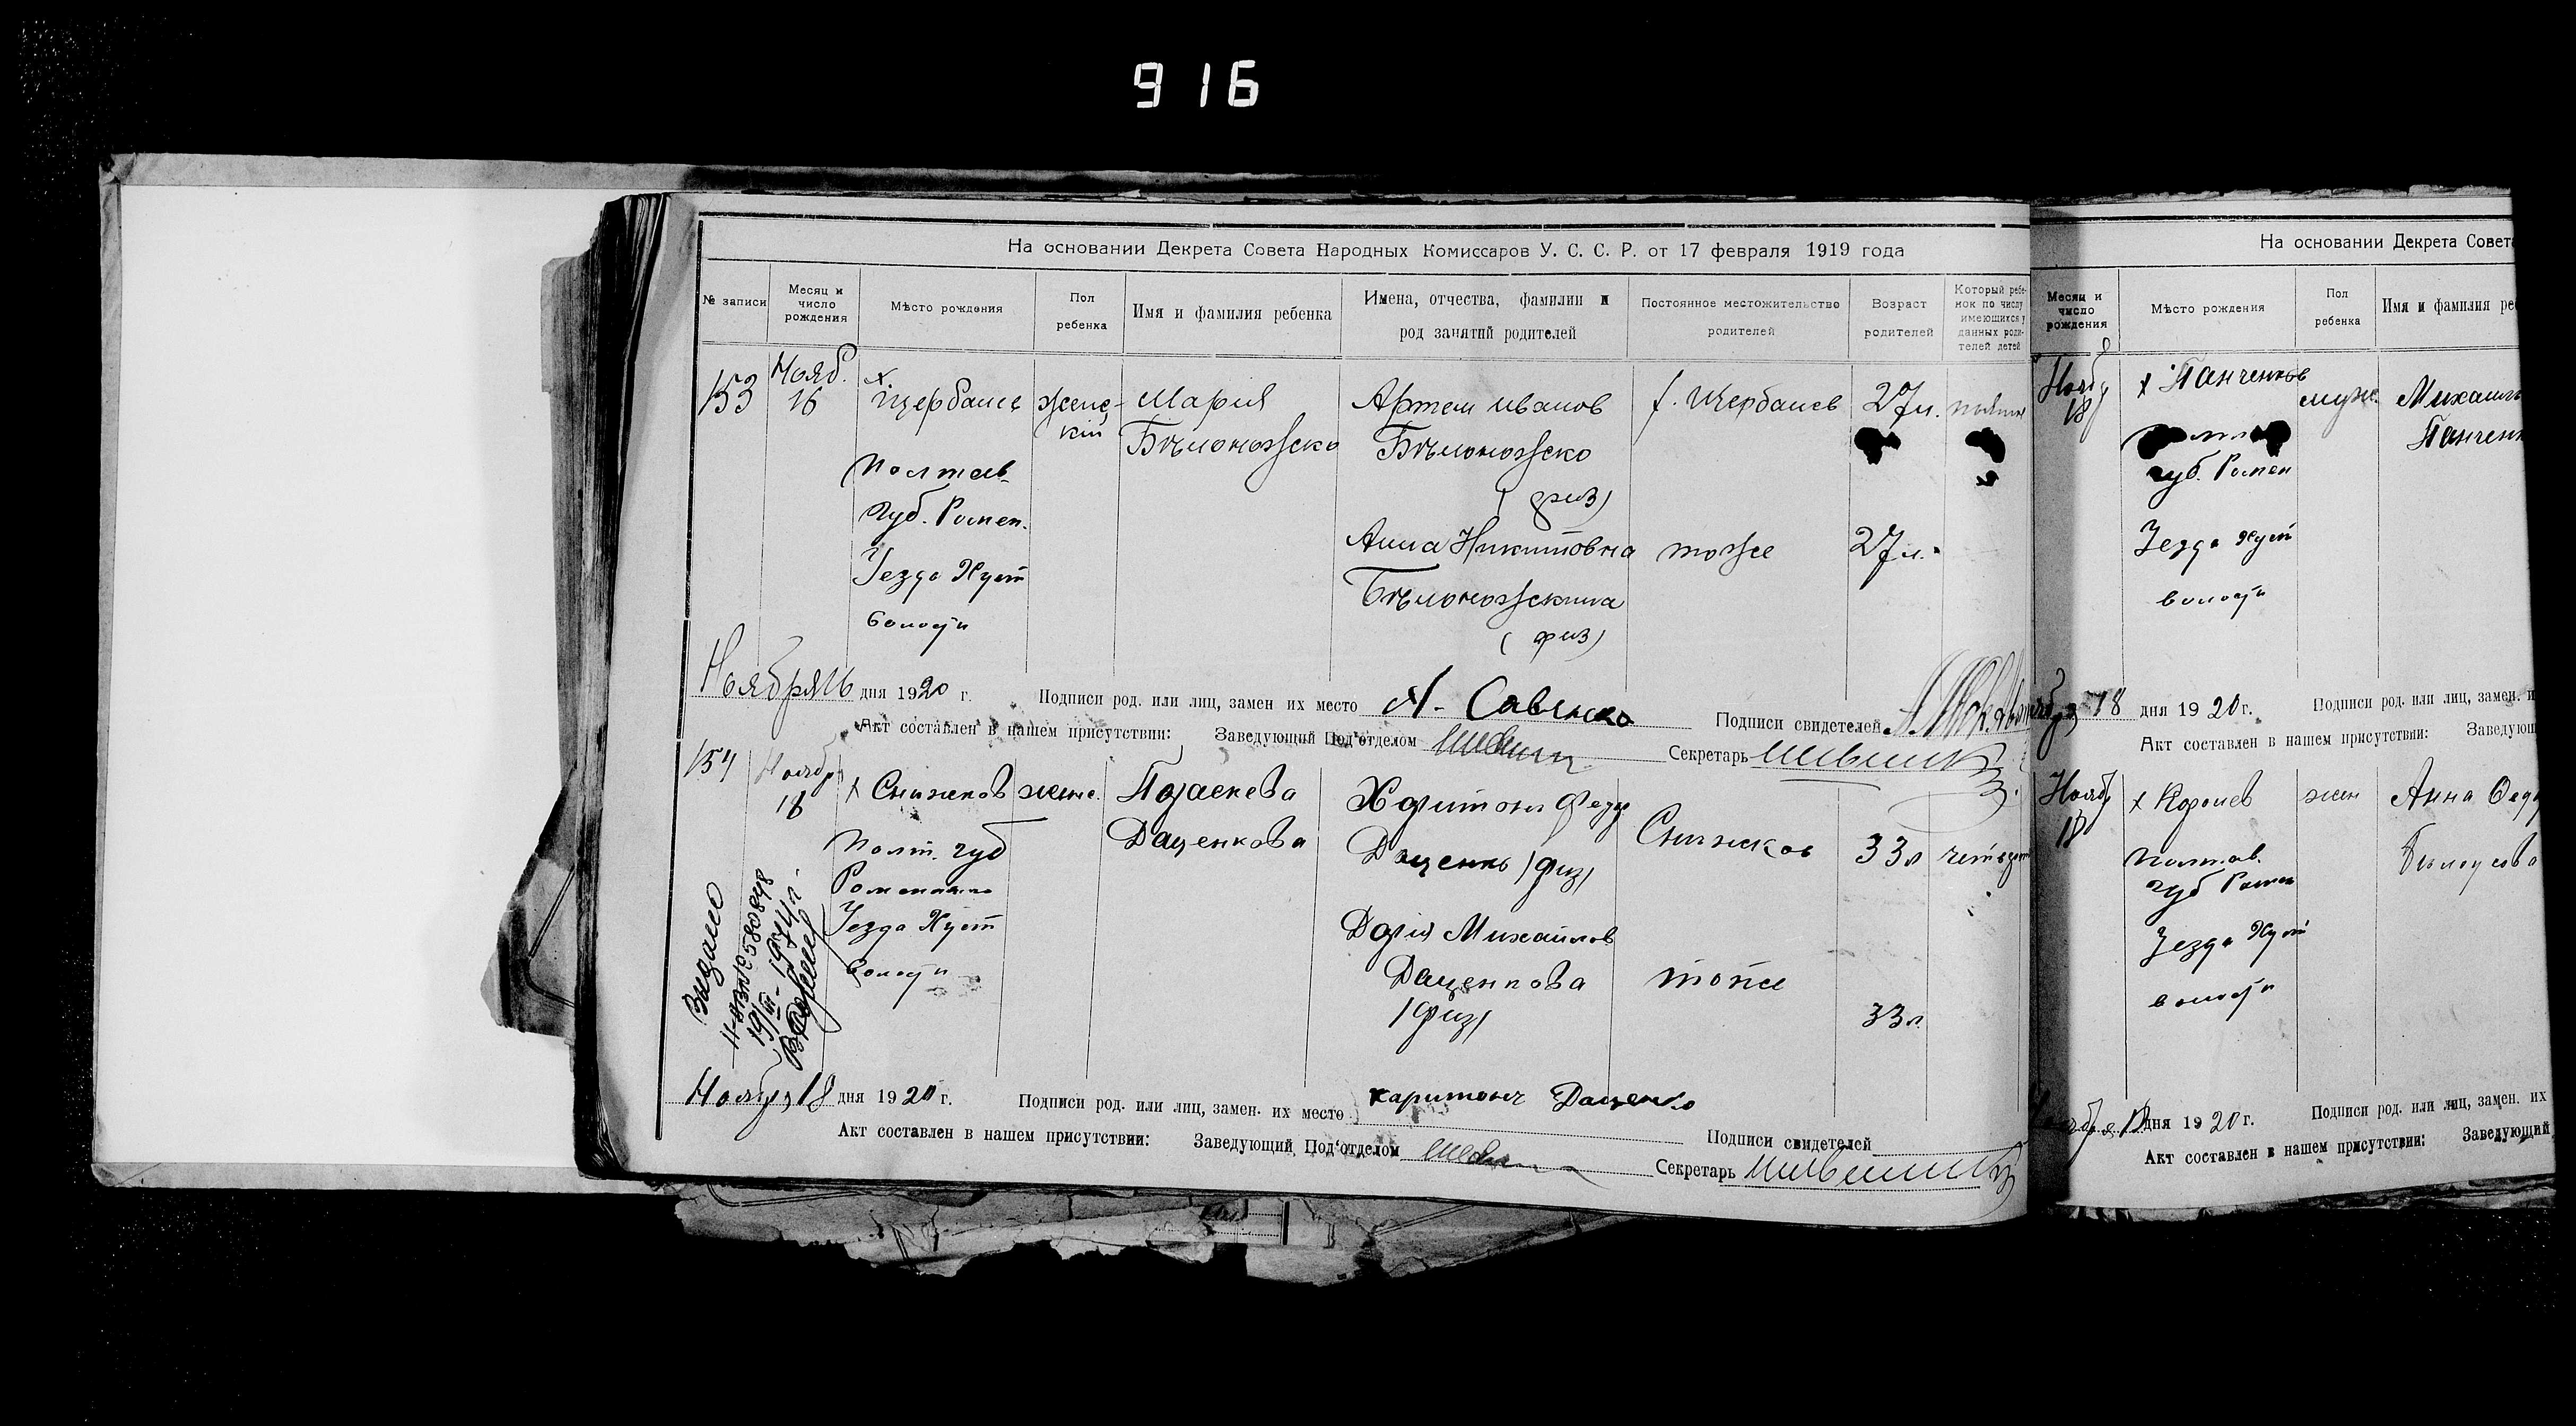 916
На основании Декрета Совета Народных Комиссаров У. С. С. Р. от 17 февраля 1919 года
№ записи
Месяц и число рождения
Мѣсто рождения
Пол ребенка
Имя и фамилия ребенка
Имена, отчества, фамилии и род занятий родителей
Постоянное местожительство родителей
Возраст родителей
Который ребенок по числу имеющихся у данных родителей детей
153
Нояб.
16
х.
Щербанев
Полтав.
губ. Ромен.
Уезда Хуст
женс-
кій
Мария
Бѣлоножско
Артем Иванов
Бѣлоножско
(физ)
Анна Никитовна
Бѣлоножскина
(физ)
х. Щербанев
тоже
27 л.
27 л.
Ноября 16 дня 1920 г.
Подписи род. или лиц, замен их место А. Савенко
Подписи свидетелей
Акт составлен в нашем присутствии: Заведующий Под'отделом
Секретарь
154
Ноябр
18
х Снижков
Полт. губ
Уезда Хуст
женс.
Даценкова
Харитон Федр
Даценко (физ)
Дария Михайлов
Даценкова
(физ)
Снижков
тоже
33 л
33 л
Видано
19/III-1974
Ноября 18 дня 1920 г.
Подписи род. или лиц, замен. их место Харитонъ Даценко
Подписи свидетелей
Акт составлен в нашем присутствии: Заведующий Под'отделом
Секретарь
На основании Декрета Совета
Месяц и число рождения
Мѣсто рождения
Пол ребенка
Имя и фамилия ре
Ноябр
18
х Панченков
губ. Ромен
Уезда Хуст
муж.
Михаил
Панченк
18 дня 1920 г.
Подписи род. или лиц, замен. и
Акт составлен в нашем присутствии: Заведующ
Ноябр
18
х Королев
Полтав.
губ Ромен
Уезда Хуст
жен
Анна
дня 1920 г.
Подписи род. или лиц, замен. их
Акт составлен в нашем присутствии: Заведующий